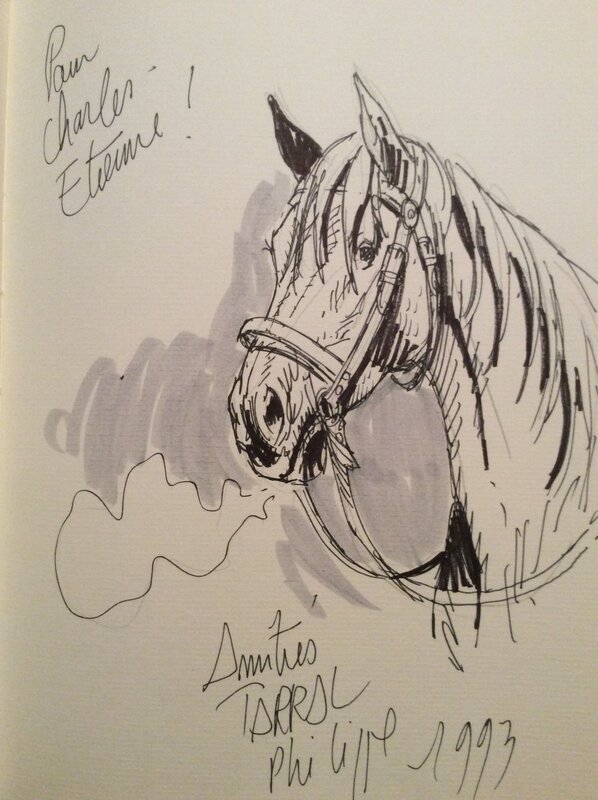 Pour
Charles-
Etienne !
Amitiés
TARRAL
Philippe 1993